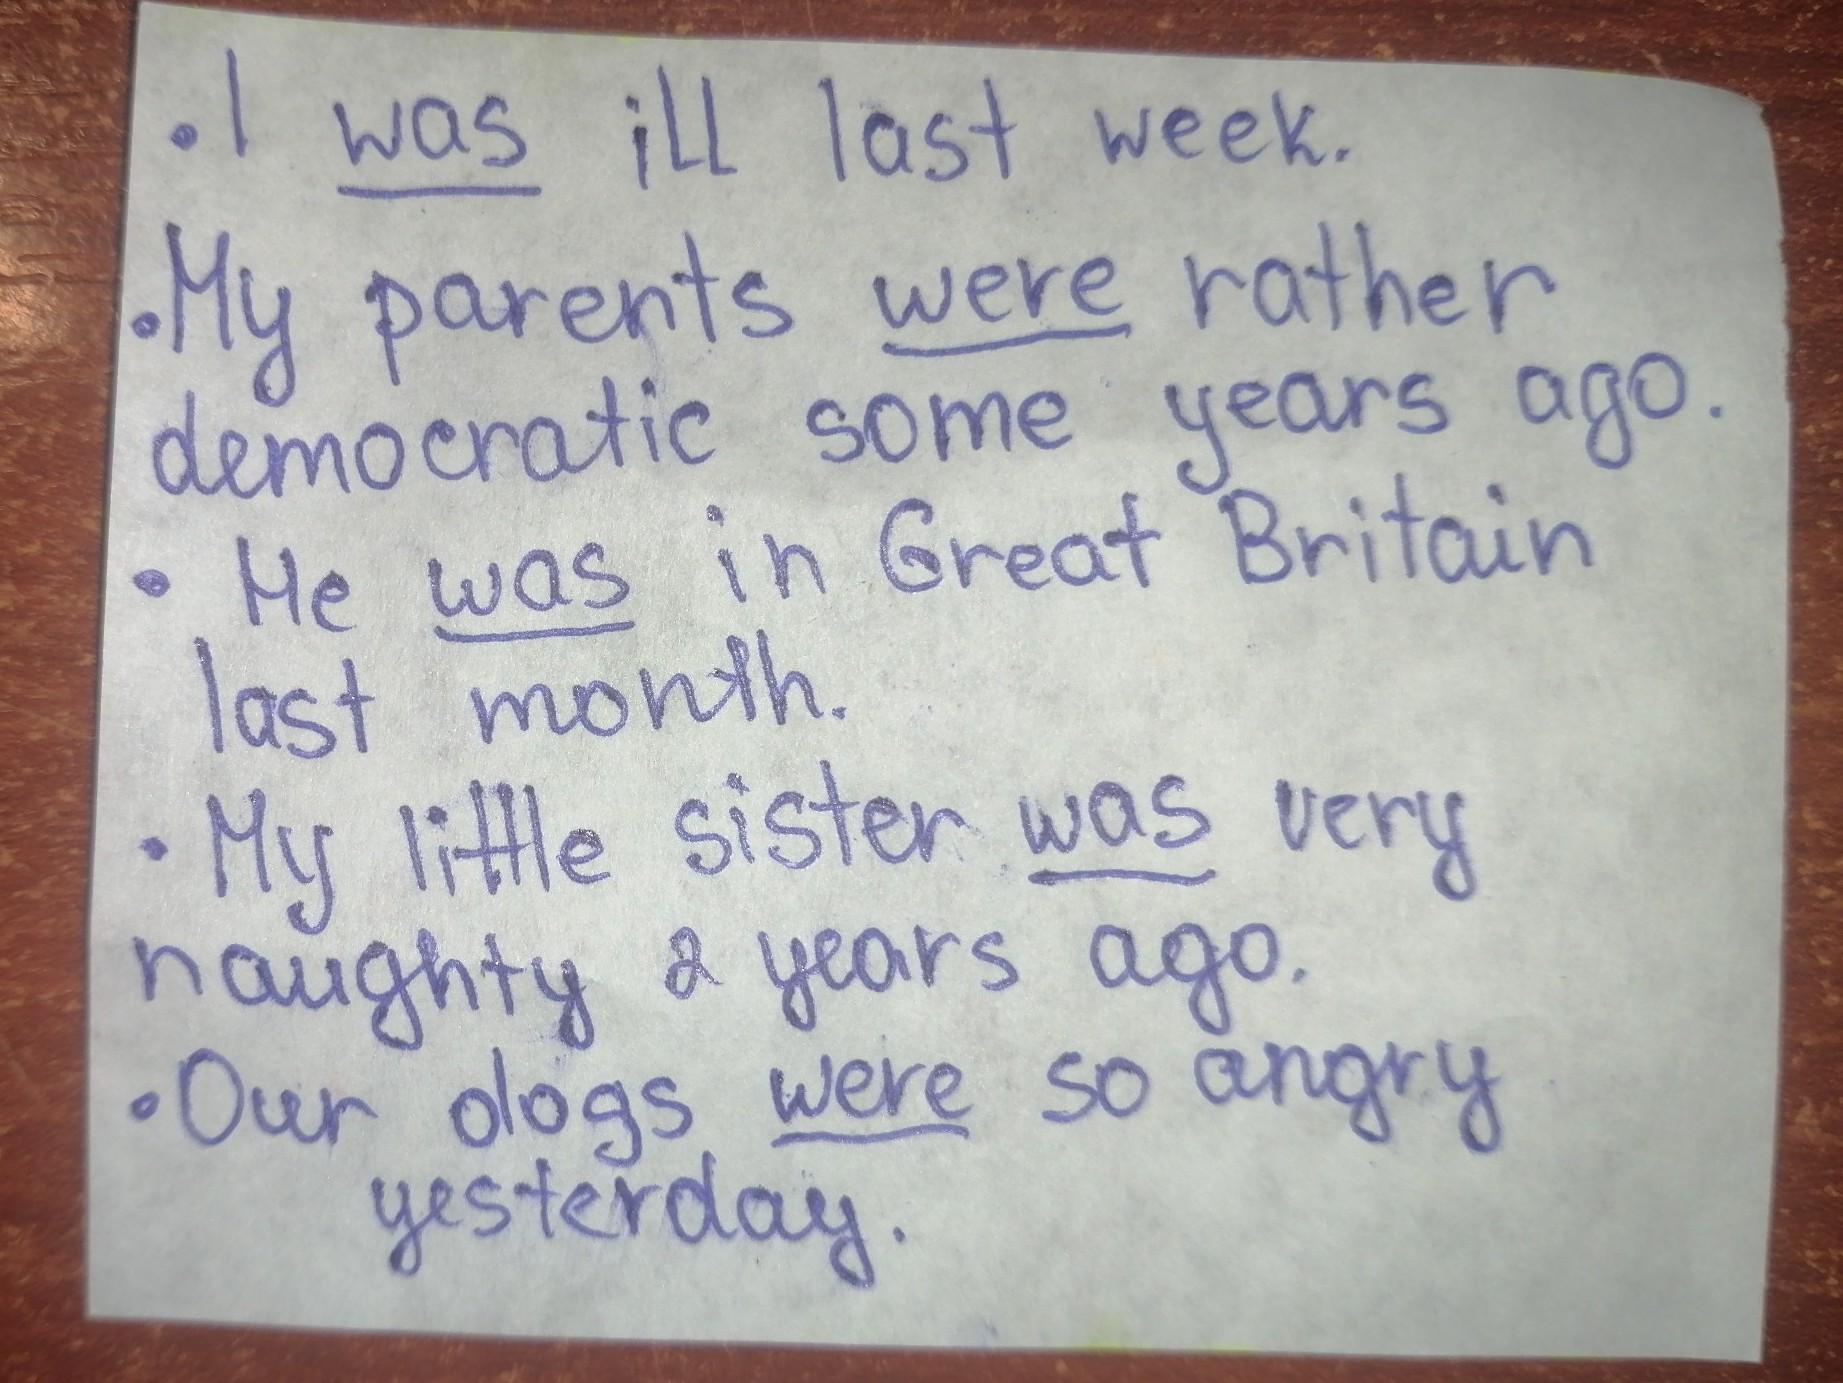 • I was ill last week.
• My parents were rather
democratic some years ago.
• He was in Great Britain
last month.
• My little sister was very
naughty 2 years ago.
• Our dogs were so angry
yesterday.